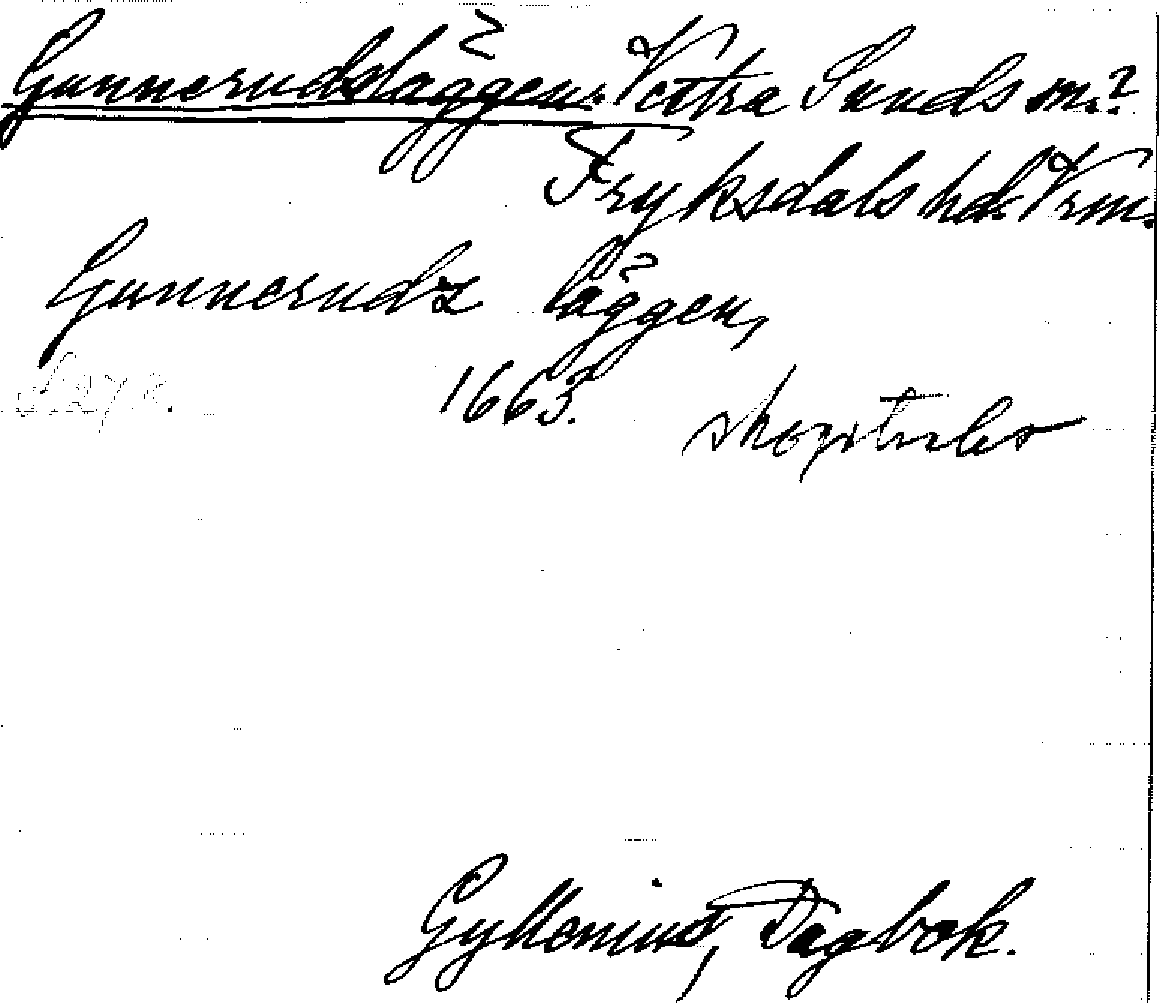 Gunnerudsläggen. Västra Sunds sn.?
Fryksdals hd. Vrm.
Gunnerudz läggen,
1663.
Gyllenius, Dagbok.